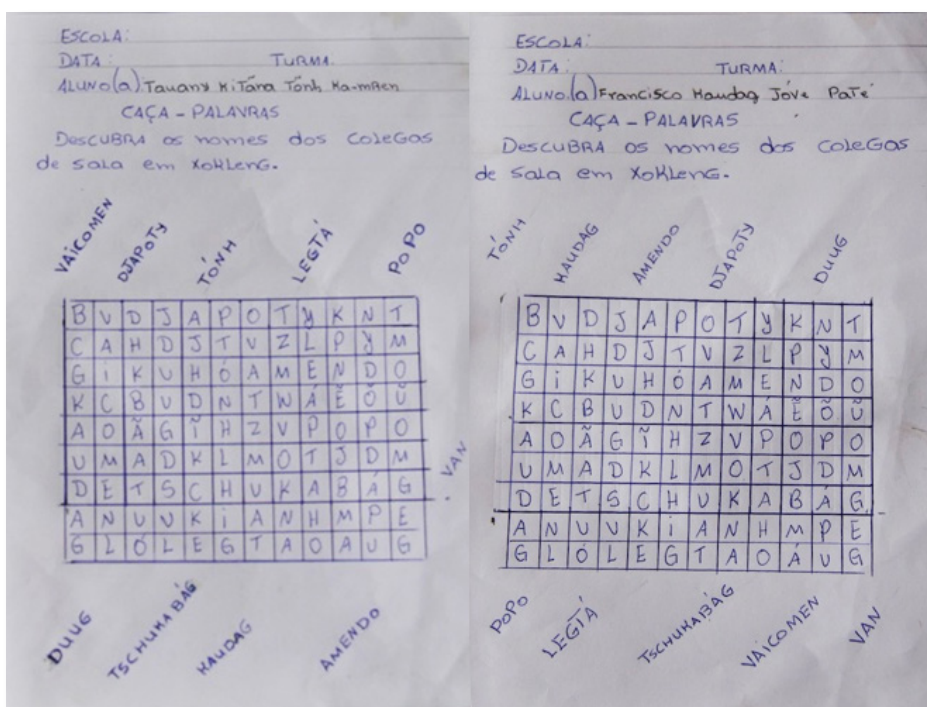 ESCOLA:
DATA: TURMA:
ALUNO(a): Tauany KiTãna Tõnh Ka-mRen
CAÇA - PALAVRAS
DESCUBRA os nomes dos COLEGAS
de SALA em XOKLENG.
VÃICOMEN DJAPOTY TÓNH LEGTÁ POPO
B V D J A P O T Y K N T
C A H D J T V Z L P Y M
G I K U H Ó A M E N D O
K C B U D N T W Á Ẽ Õ Ũ
A O Ã G Ĩ H Z V P O P O
U M A D K L M O T J D M
D E T S C H U K A B Á G
A N U V K I A N H M P E
G L Ó L E G T A O A U G
VAN
DUUG TSCHUKABÁG KAUDAG AMENDO
ESCOLA:
DATA: TURMA:
ALUNO(a) Francisco Kaudag Jóve PaTé
CAÇA - PALAVRAS
DESCUBRA os nomes dos COLEGAS
de SALA em XOKLENG.
TÓNH KAUDAG AMENDO DJAPOTY DUUG
B V D J A P O T Y K N T
C A H D J T V Z L P Y M
G I K U H Ó A M E N D O
K C B U D N T W Á Ẽ Õ Ũ
A O Ã G Ĩ H Z V P O P O
U M A D K L M O T J D M
D E T S C H U K A B Á G
A N U V K I A N H M P E
G L Ó L E G T A O Á U G
POPO LEGTÁ TSCHUKABÁG VÃICOMEN VAN